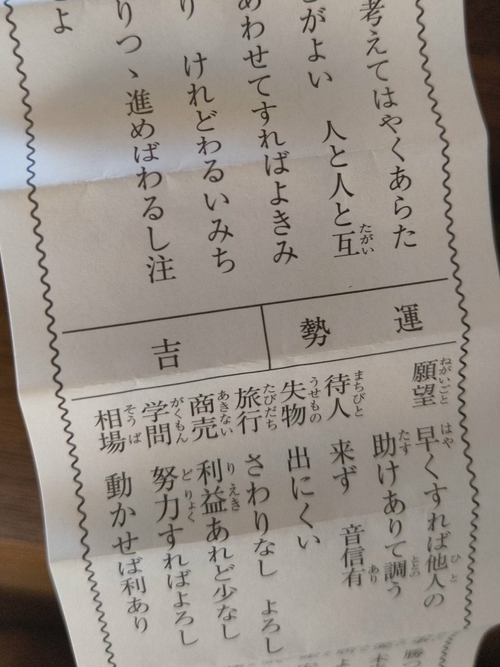 考えてはやくあらた
がよい 人と人と互
あわせてすればよきみ
り けれどわるいみち
りつゝ進めばわるし注
よ
運勢
吉
願望 早くすれば他人の
助けありて調う
待人 来ず 音信有
失物 出にくい
旅行 さわりなし よろし
商売 利益あれど少なし
学問 努力すればよろし
相場 動かせば利あり